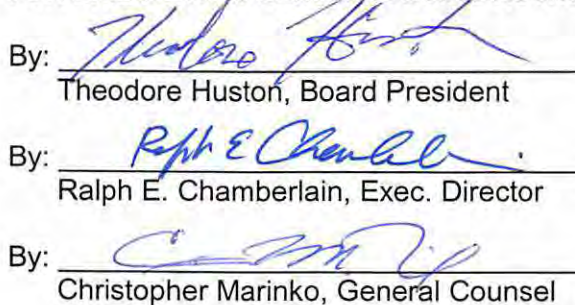 By: Theodore Huston
Theodore Huston, Board President
By: Ralph E Chamberlain
Ralph E. Chamberlain, Exec. Director
By:
Christopher Marinko, General Counsel